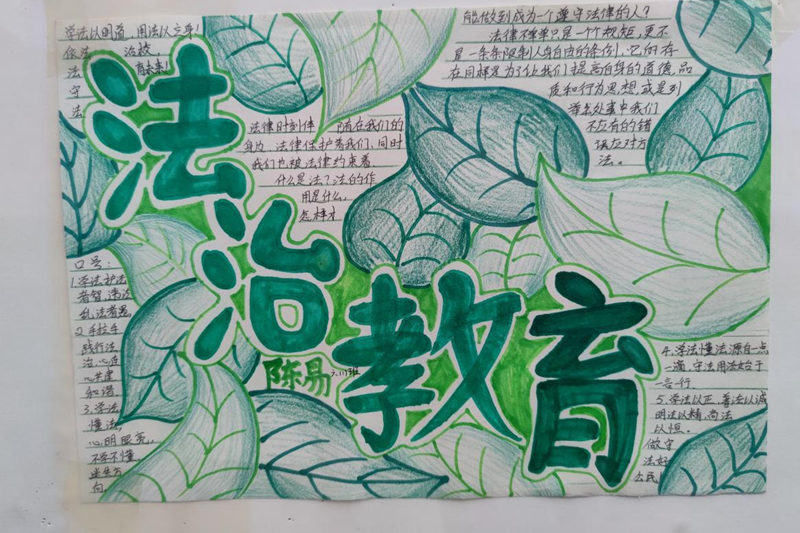 学法以明道,用法以立身!
依法 治校,
法 有未来!
守
法
法治教育
陈易
法律时刻伴 随在我们的
身边,法律保护着我们,同时
我们也被法律约束着
什么是法?法的作
用是什么,
怎样才
能做到成为一个遵守法律的人?
法律不单单只是一个个规矩,更不
是一条条限制人身自由的条例,它的存
在同样是为了让我们提高自身的道德,品
质和行为思想,或是到
潜在处事中我们
不应有的错
误应对方
法。
口号:
1.学法护法
者智,违法
乱法者愚。
2.手拉手
践行法
治,心连
心共建
和谐
3.学法
懂法,
心明眼亮,
不学不懂
迷失方
向。
4.学法懂法源自一点
一滴,守法用法始于
一言一行
5.学法以正,普法以诚
明法以精,尚法
以恒。
做守
法好
公民